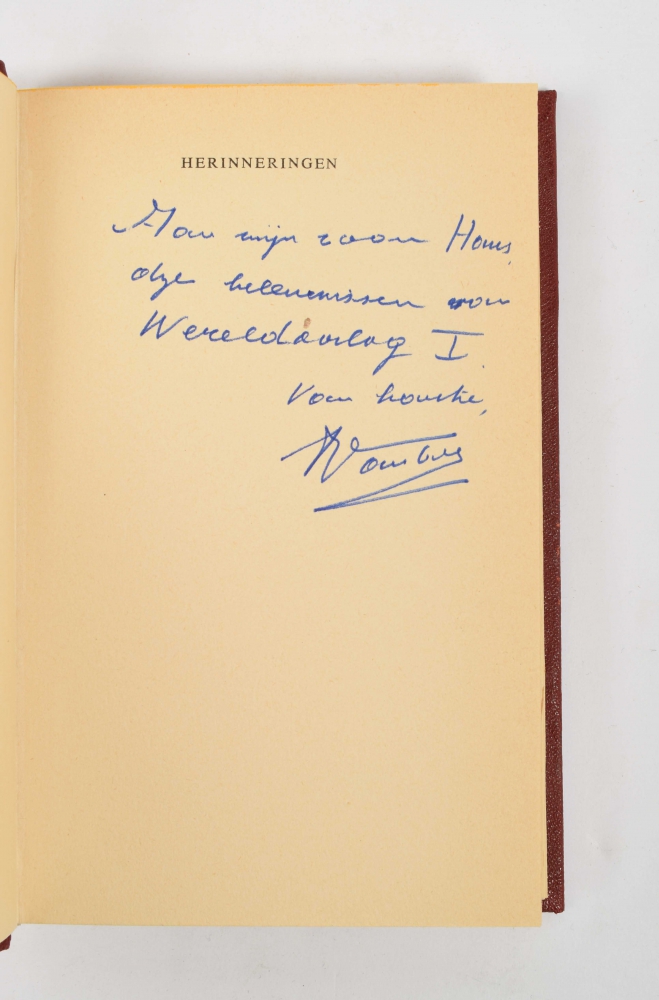 HERINNERINGEN
Aan mijn zoon Hans,
belevenissen van
Wereldoorlog I.
Van harte,